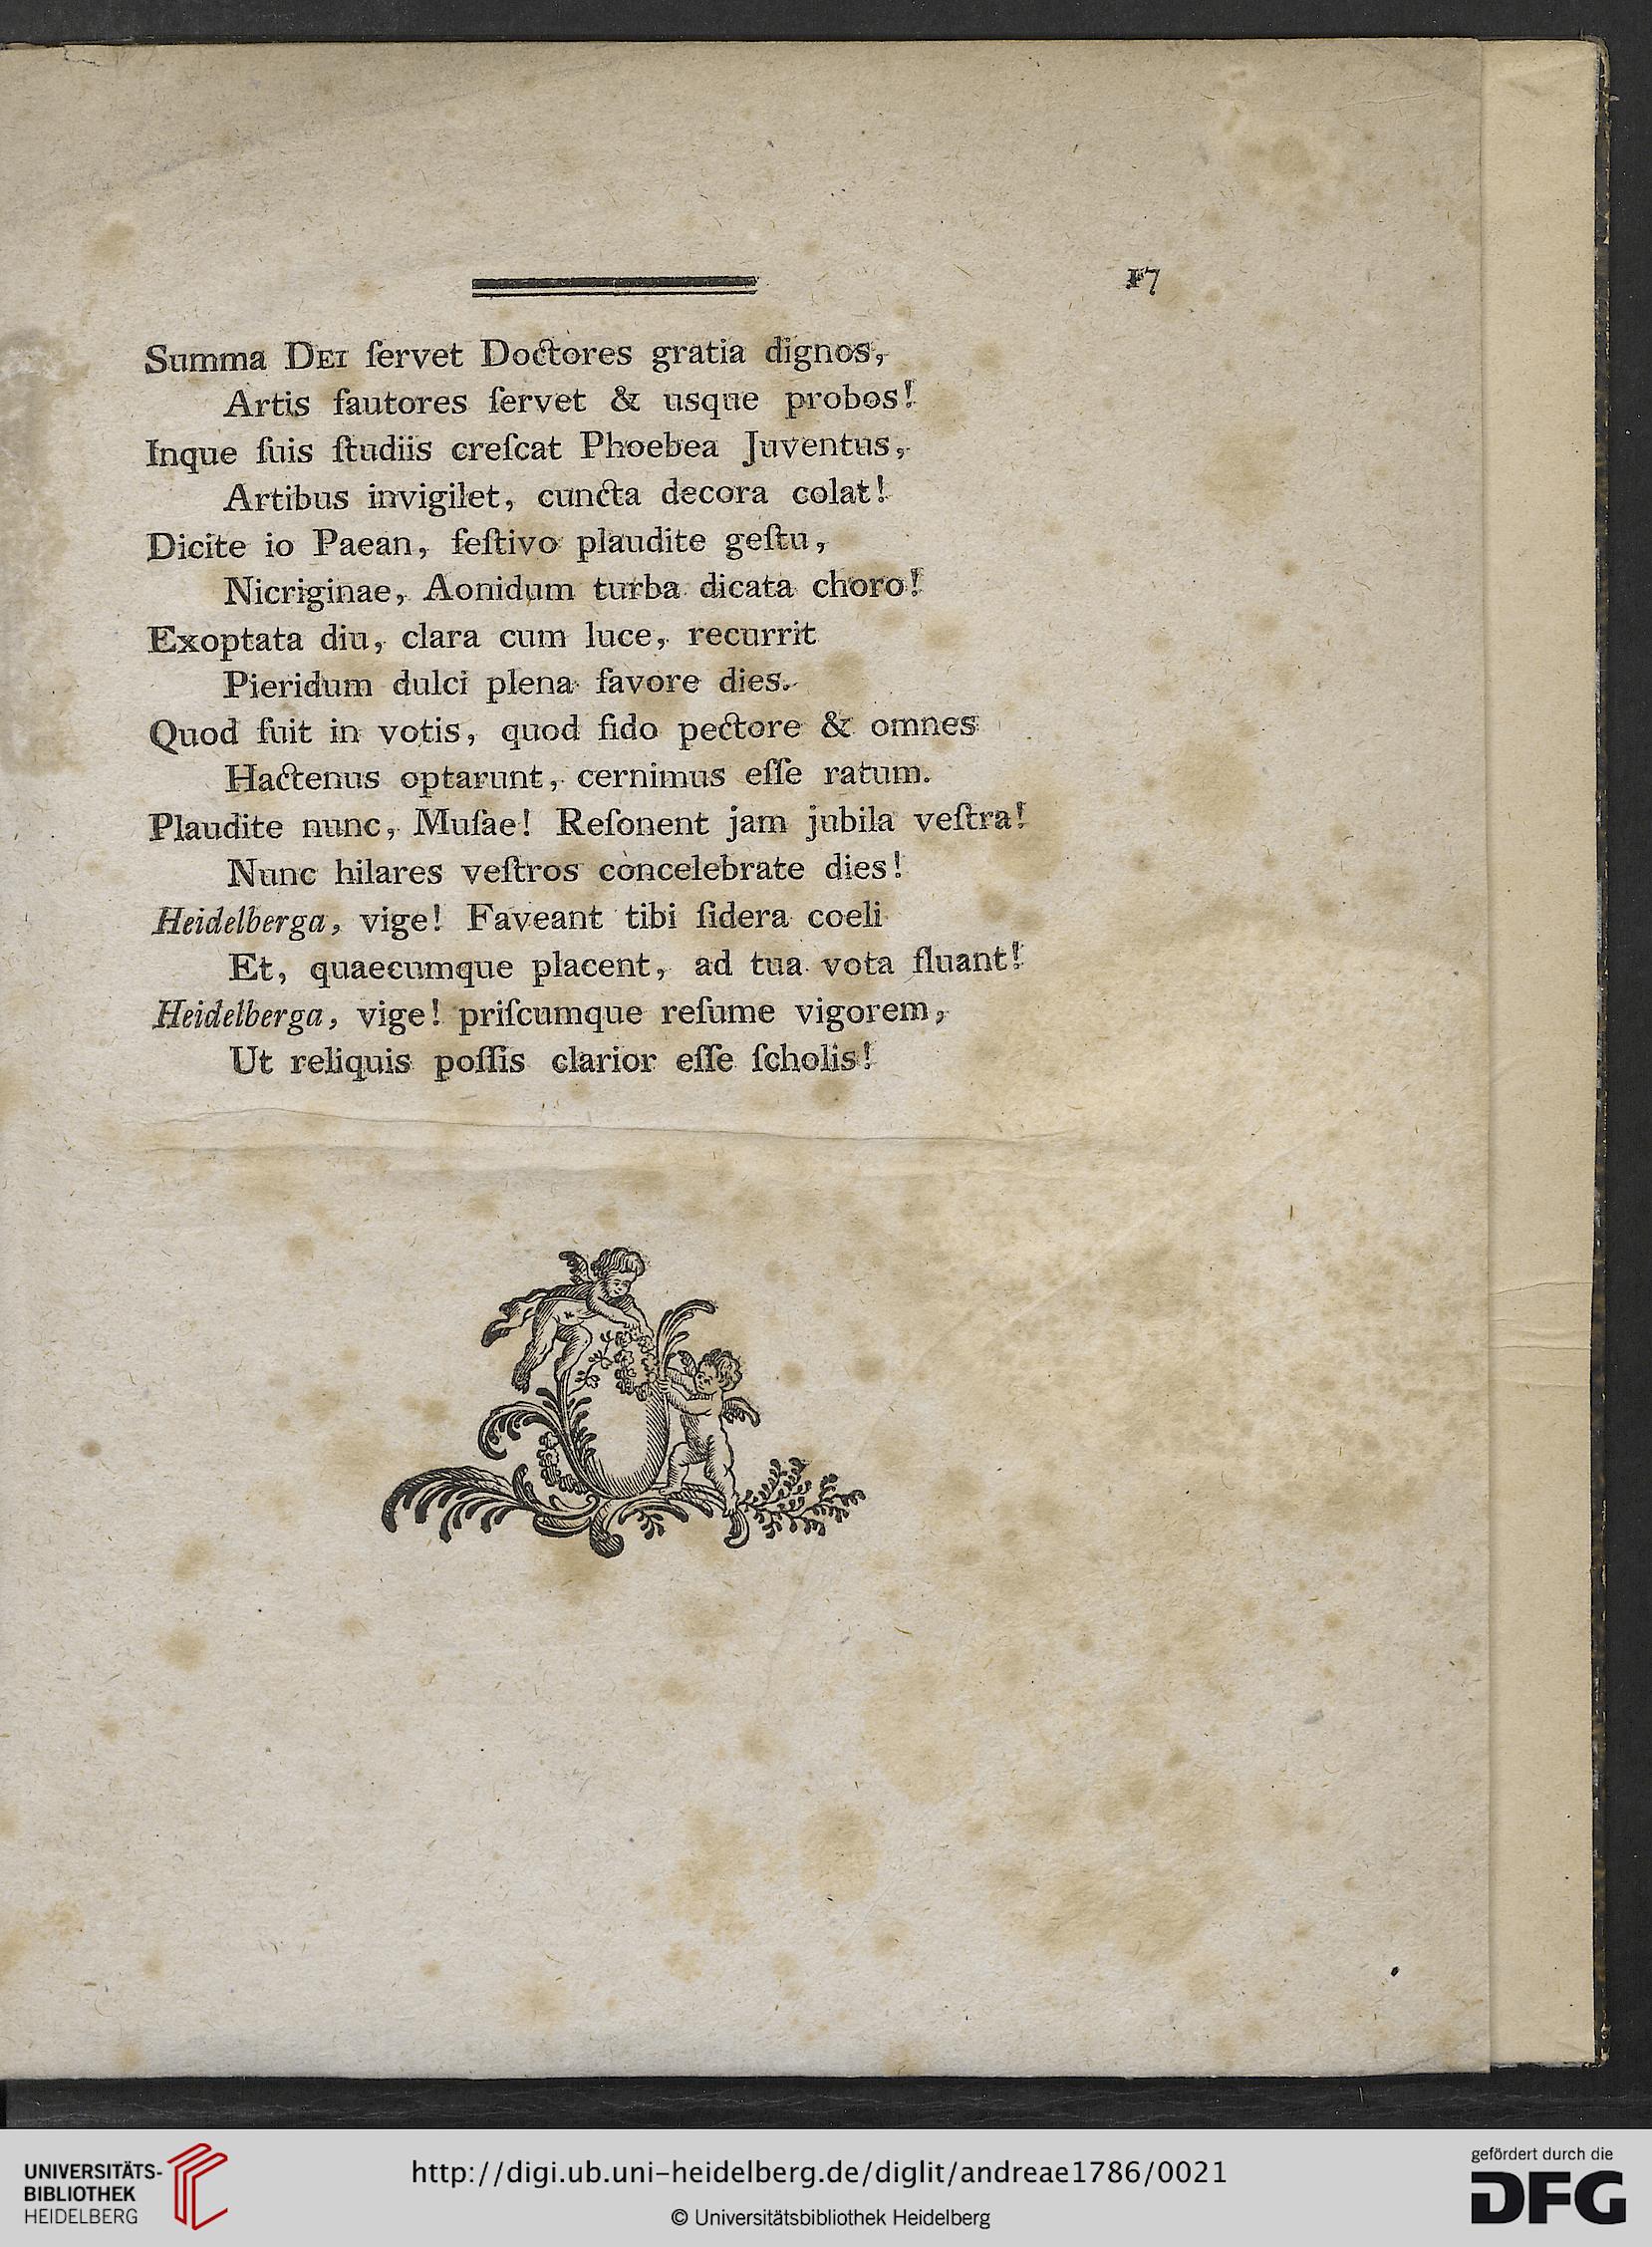 17
Summa DEI ſervet Doctores gratia dignos,
Artis fautores ſervet & usque probos!
Inque ſuis ſtudiis creſcat Phoebea Juventus,
Artibus invigilet, cuncta decora colat!
Dicite io Paean, feſtivo plaudite geſtu,
Nicriginae, Aonidum turba dicata choro!
Exoptata diu, clara cum luce, recurrit
Pieridum dulci plena favore dies.
Quod fuit in votis, quod fido pectore & omnes
Hactenus optarunt, cernimus eſſe ratum.
Plaudite nunc, Muſae! Reſonent jam jubila veſtra!
Nunc hilares veſtros concelebrate dies!
Heidelberga, vige! Faveant tibi ſidera coeli
Et, quaecumque placent, ad tua vota fluant!
Heidelberga, vige! priſcumque reſume vigorem,
Ut reliquis poſſis clarior eſſe ſcholis!
UNIVERSITÄTS-
BIBLIOTHEK
HEIDELBERG
http://digi.ub.uni-heidelberg.de/diglit/andreae1786/0021
© Universitätsbibliothek Heidelberg
gefördert durch die
DFG